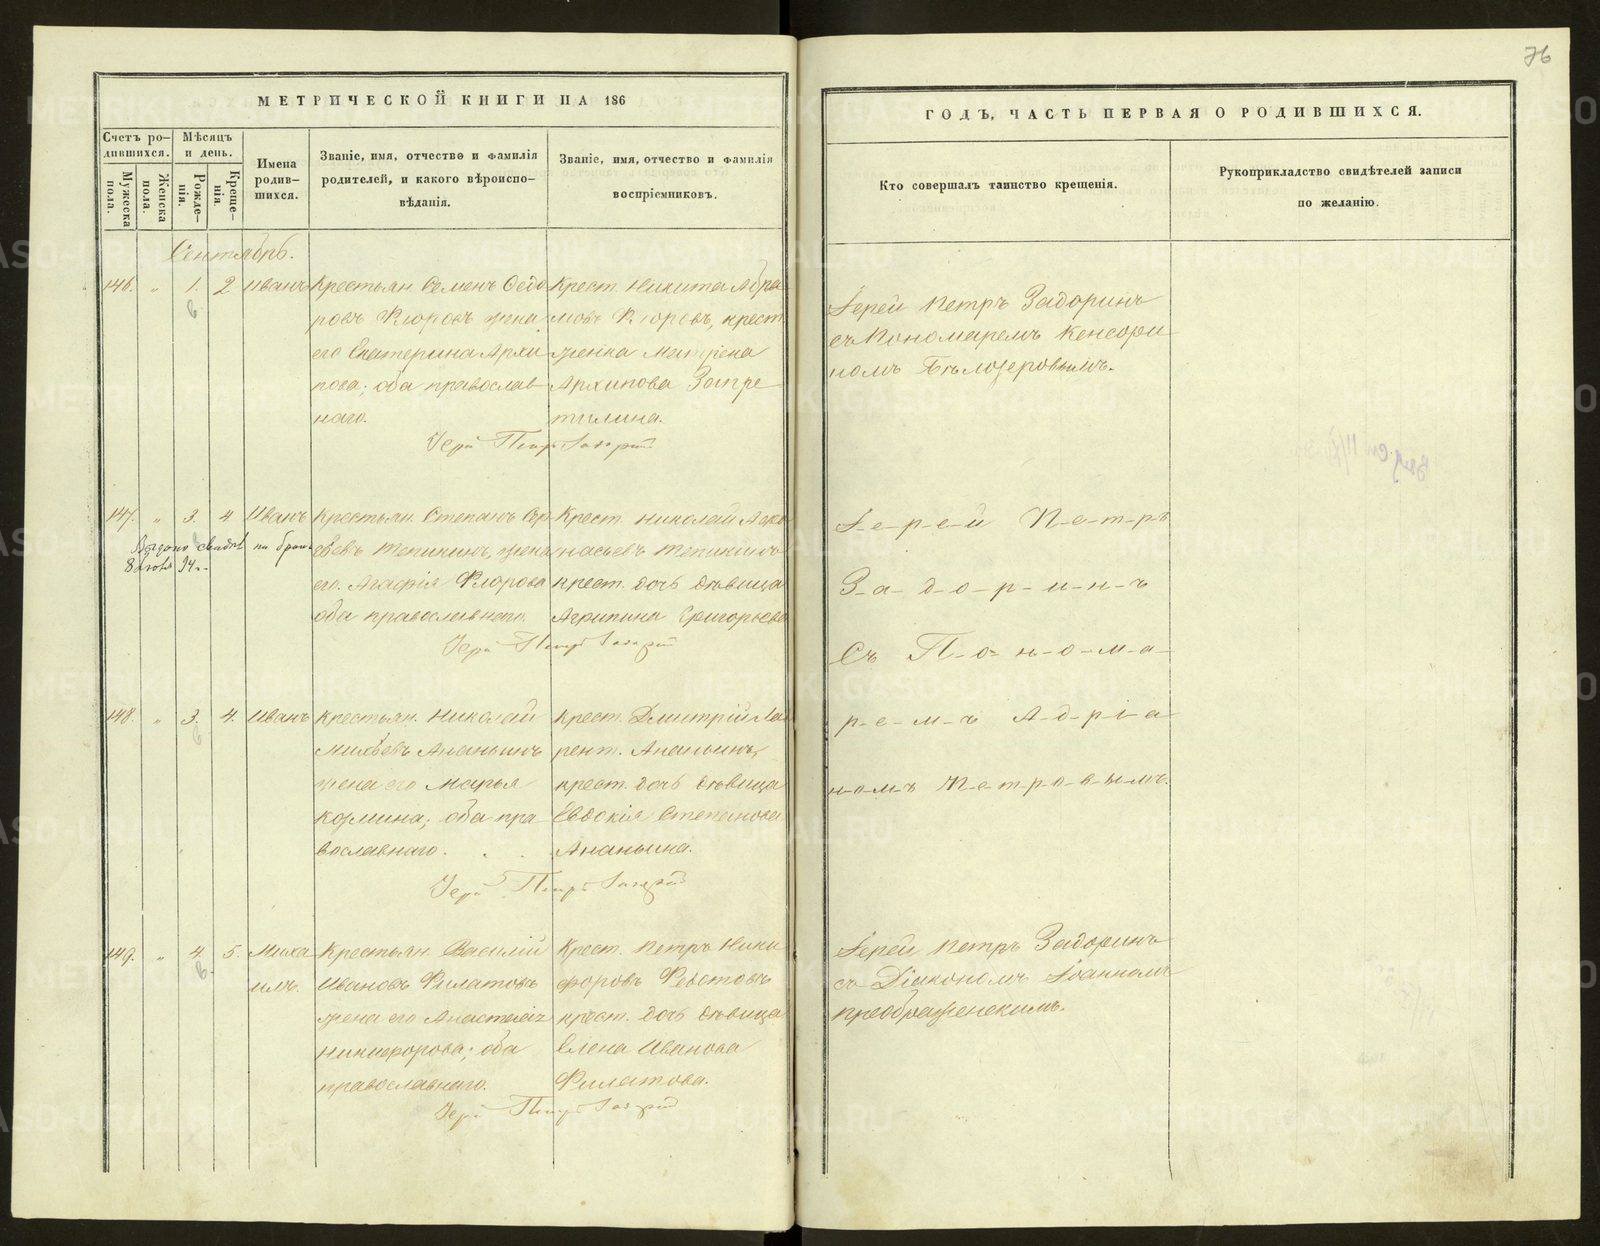 76
МЕТРИЧЕСКОЙ КНИГИ НА 186
ГОДЪ, ЧАСТЬ ПЕРВАЯ О РОДИВШИХСЯ.
Счетъ ро-
дившихся.
Мужеска
пола.
Женска
пола.
Мѣсяцъ
и день.
Рожде-
нія.
Креще-
нія.
Имена
родив-
шихся.
Званіе, имя, отчество и фамилія
родителей, и какого вѣроиспо-
вѣданія.
Званіе, имя, отчество и фамилія
воспріемниковъ.
Кто совершалъ таинство крещенія.
Рукоприкладство свидѣтелей записи
по желанію.
Сентябрь.
146. " 1. 2 Иванъ
Крестьян. Семенъ Ѳедо
ровъ жена
его Екатерина Архи
пова; оба православ
наго.
Крест. Никита Абра
мовъ крест.
женка Матрена
Архипова Запре
тилина.
Іерей Петръ Задоринъ
съ Пономаремъ Кенсори
номъ Бѣлозеровымъ.
Іерей Петръ Задоринъ
147. " 3. 4 Иванъ
Выдано свидѣт на брак
8 94 г.
Крестьян. Степанъ Сер
гѣевъ Тепикинъ, жена
его Агафія Флорова
оба православнаго.
Крест. Николай Аѳа
насьевъ Тепикинъ
крест. дочь дѣвица
Агрипина Григорьева
Іерей Петръ
Задоринъ
Съ Понома
ремъ Адріа
номъ Петровымъ.
Іерей Петръ Задоринъ
148. " 3. 4. Иванъ
Крестьян. Николай
Михѣевъ Ананьинъ
жена его Марья
Козмина; оба пра
вославнаго.
Крест. Дмитрій Ла
рент. Ананьинъ,
крест. дочь дѣвица
Евдокія Степанова
Ананьина.
Іерей Петръ Задоринъ
149. " 4. 5. Миха
илъ.
Крестьян. Василій
Ивановъ Филатовъ
жена его Анастасія
Никифорова; оба
православнаго.
Крест. Петръ Ники
форовъ Ѳедотовъ
крест. дочь дѣвица
Елена Иванова
Филатова.
Іерей Петръ Задоринъ
съ Діакономъ Іоанномъ
Преображенскимъ.
Іерей Петръ Задоринъ
METRIKI.GASO-URAL.RU